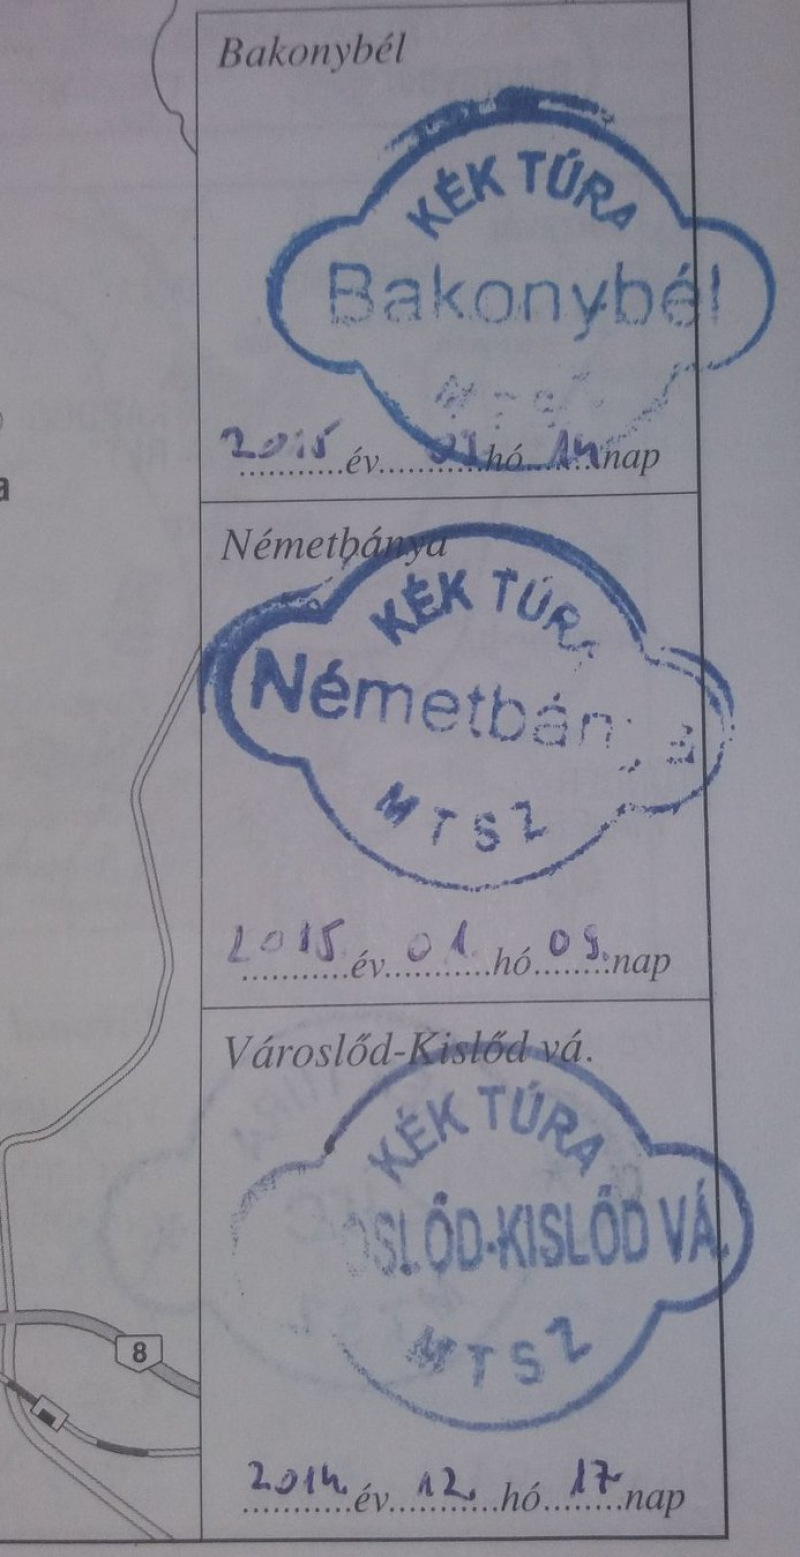 Bakonybél
KÉK TÚRA
Bakonybél
2015 év 01 hó 14 nap
Németbánya
KÉK TÚRA
Németbánya
MTSZ
2015. év 01. hó 09. nap
Városlőd-Kislőd vá.
KÉK TÚRA
OSLŐD-KISLŐD VÁ.
MTSZ
2014. év 12. hó 17. nap
8
a